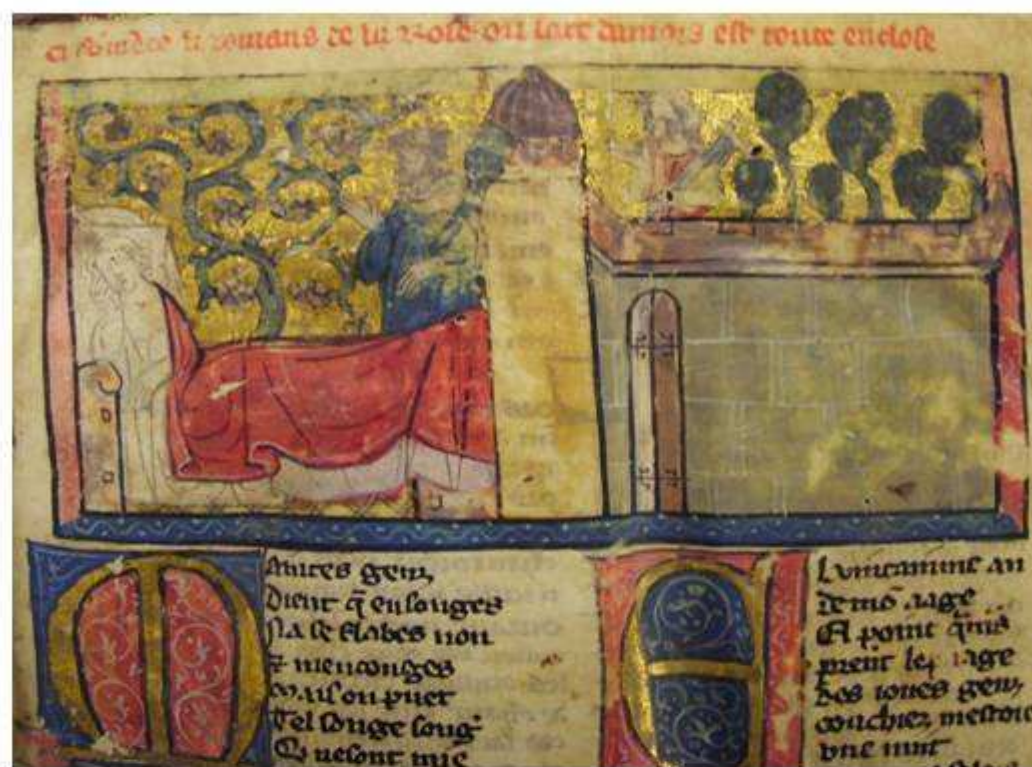 Ci comēce li romans de la Rose ou lart damors est toute enclose
Maintes genz
dient q̄ en songes
Na se flabes non
⁊ menconges
Mais on puet
Tel songe
Que sont mie
El vintainme an
de mō aage
El point
prent le
Des iones genz
couchiez mestoie
vne nuit